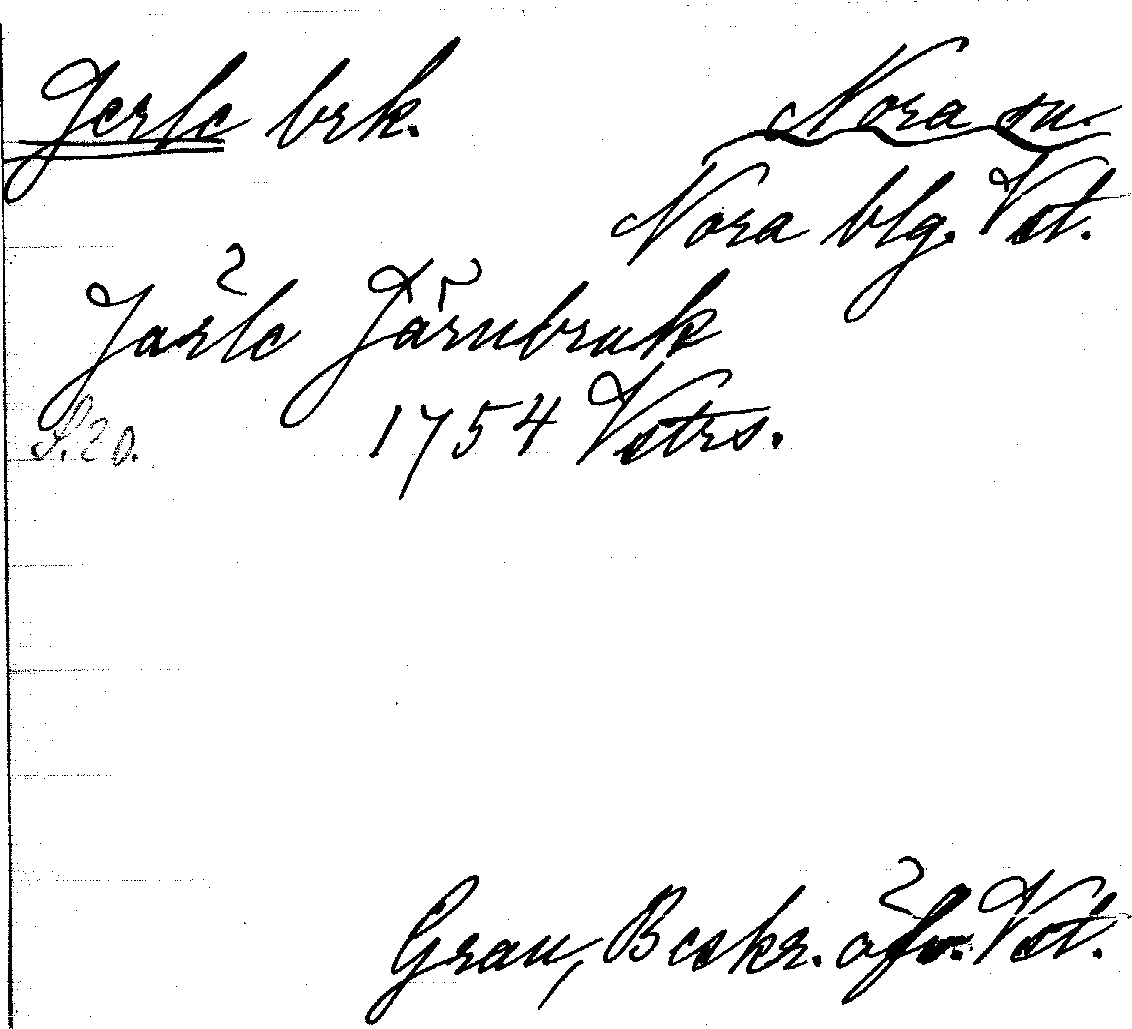 Jerle brk.
Nora sn.
Nora blg. Vst.
Järle Järnbruk
S. 20. 1754 Vstrs.
Grau, Beskr. öfv. Vst.